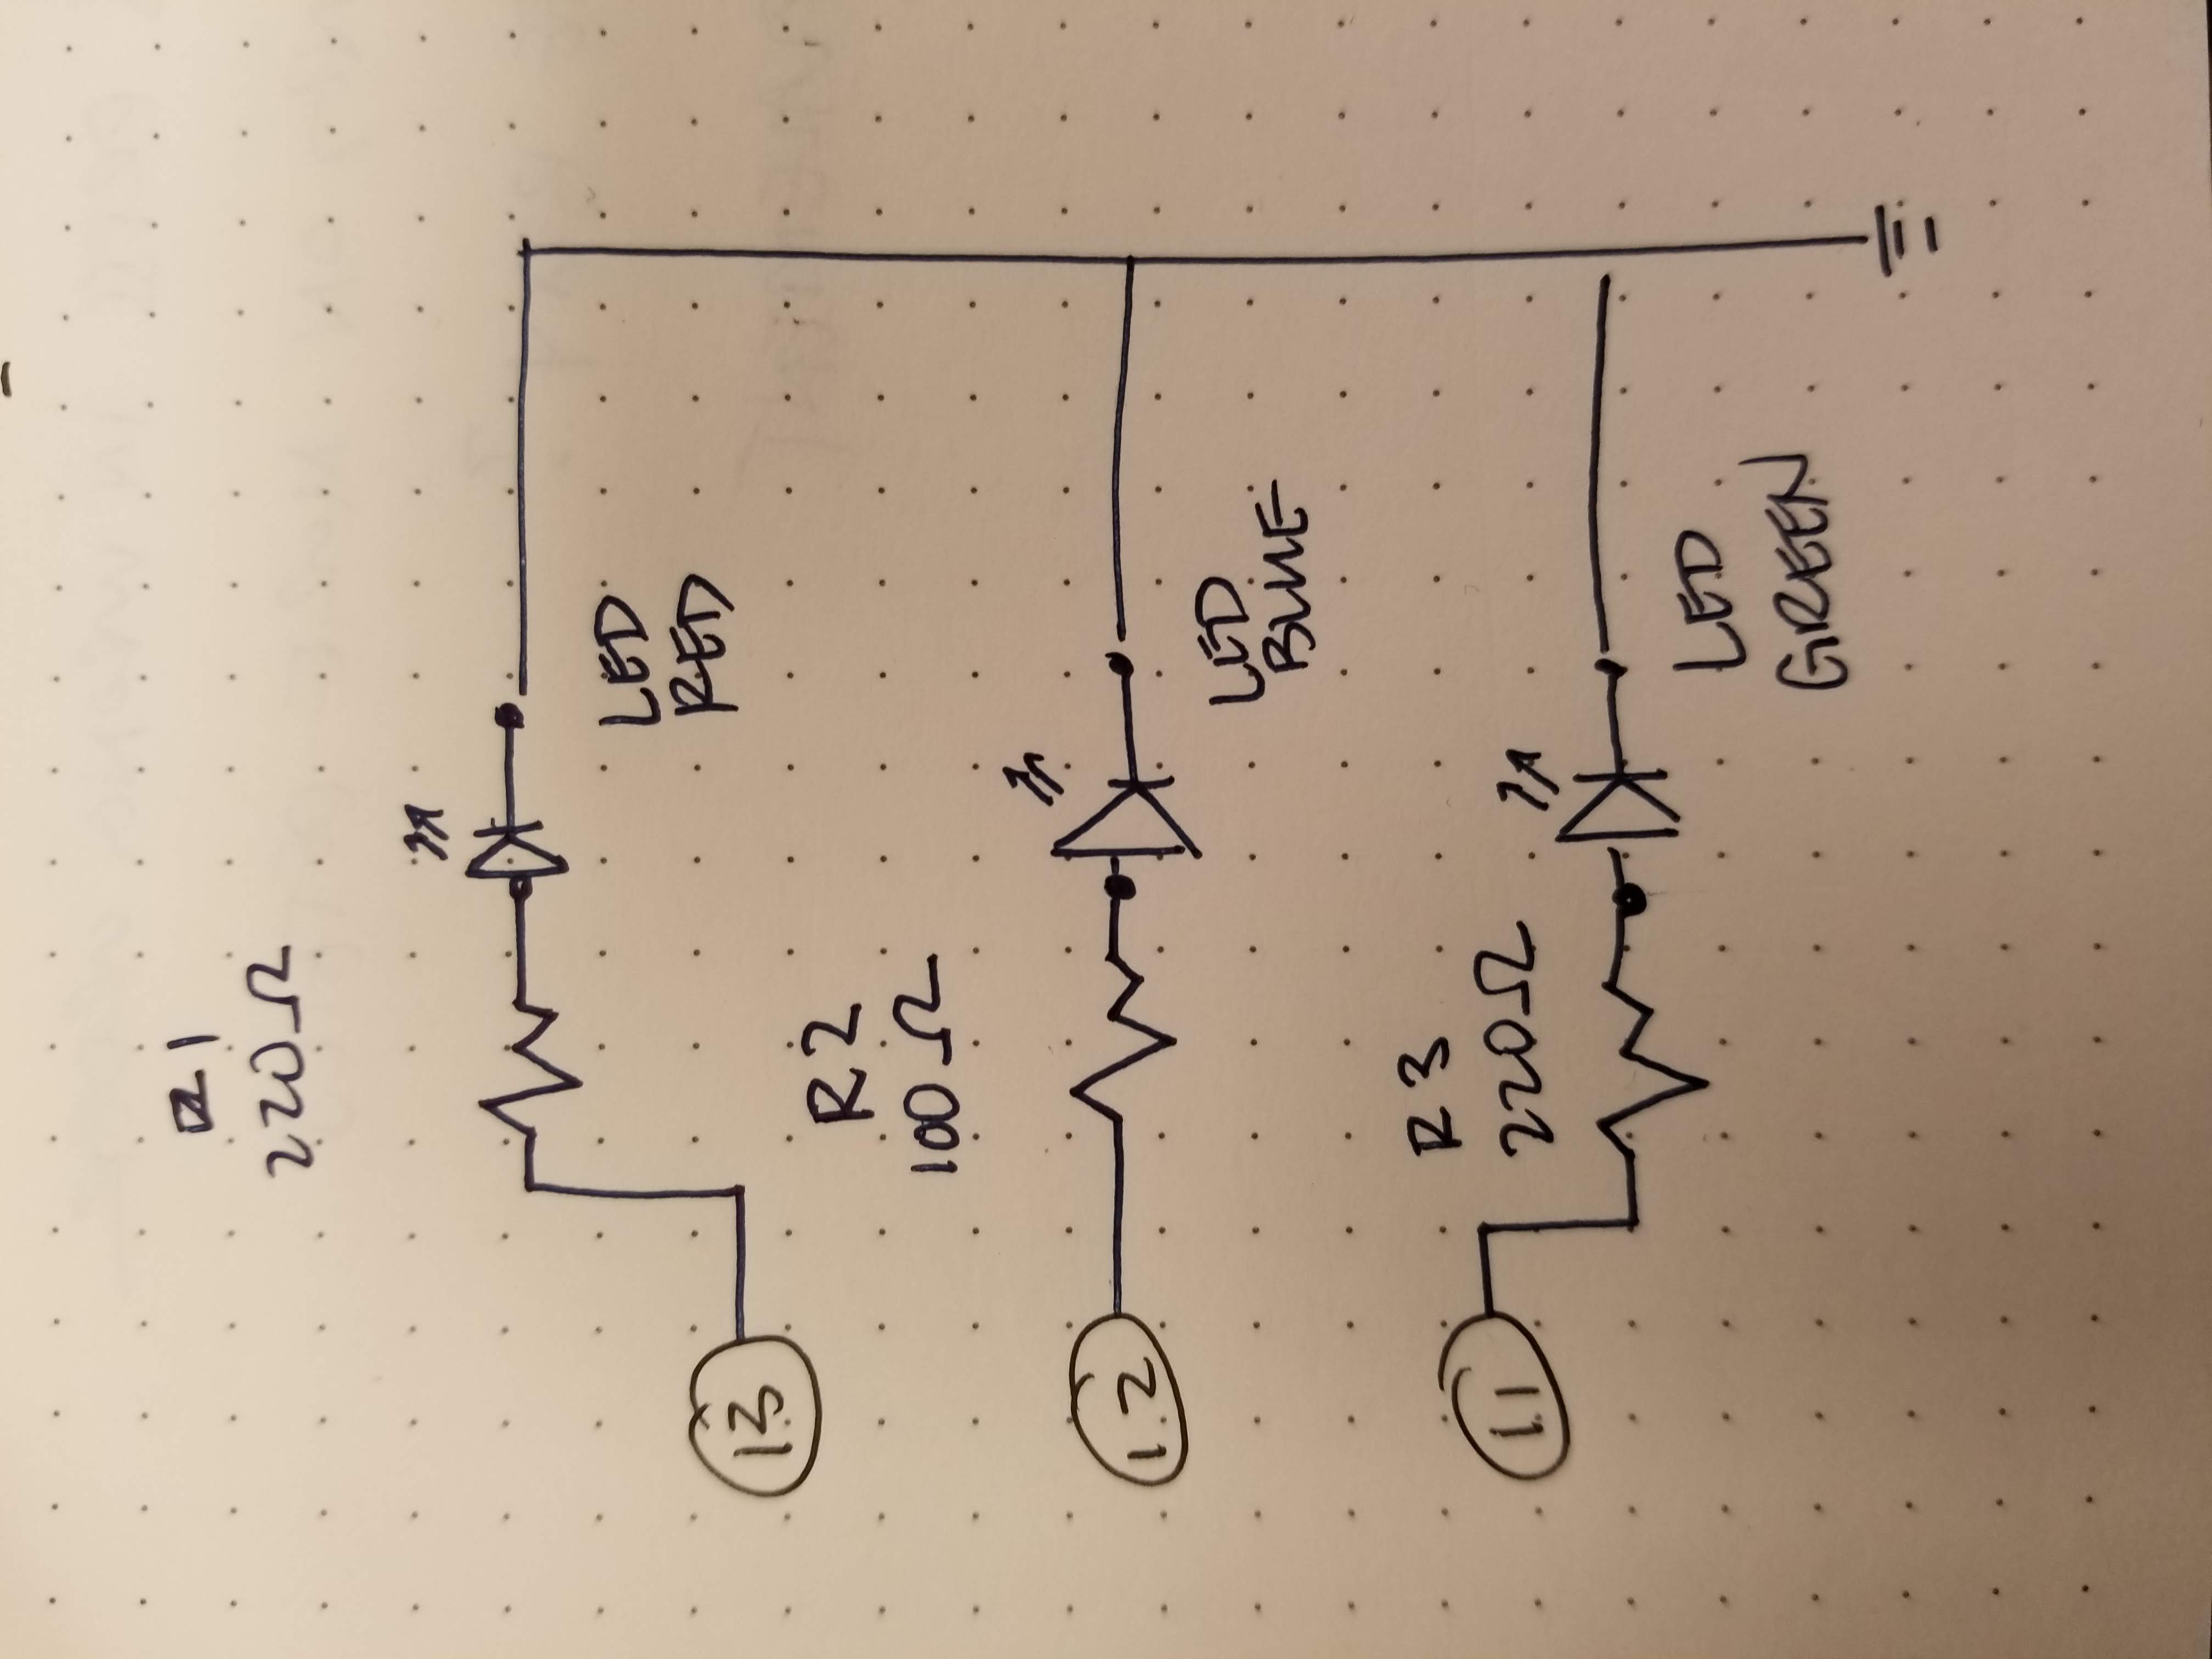 R1
220Ω
LED
RED
13
R2
100Ω
12
LED
BLUE
R3
11
220Ω
LED
GREEN